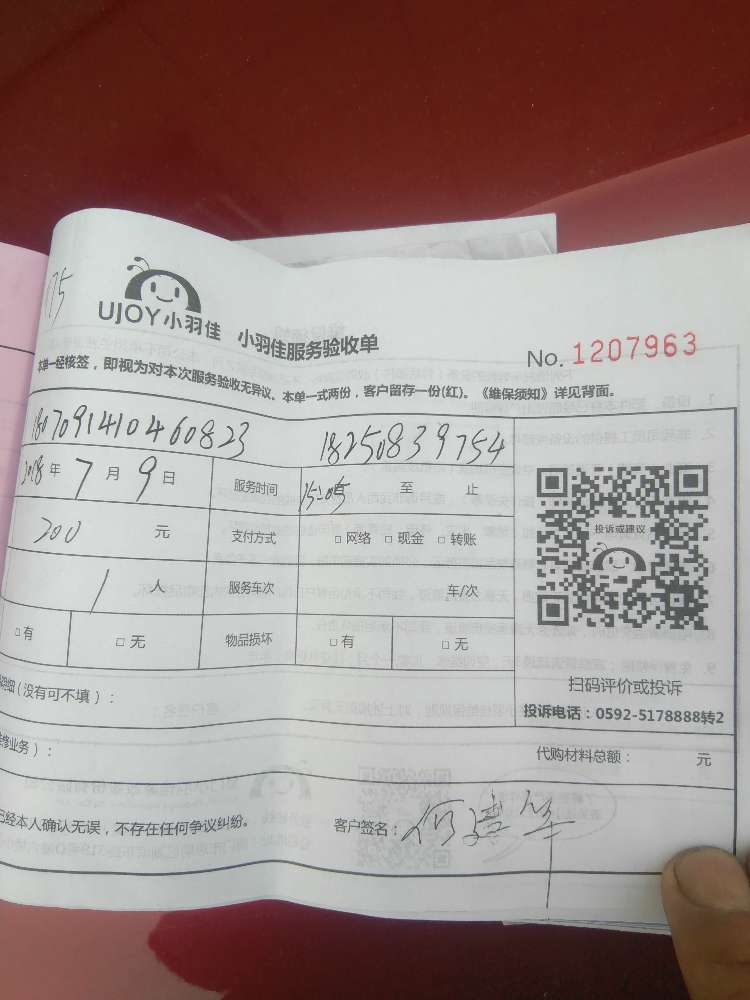 175
UJOY小羽佳 小羽佳服务验收单
No. 1207963
本单一经核签，即视为对本次服务验收无异议、本单一式两份，客户留存一份(红)。《维保须知》详见背面。
1807091410460823 18250839754
2018年7月9日 服务时间 至 止
200 元 支付方式 □ 网络 □ 现金 □ 转账
投诉或建议
1 人 服务车次 车/次
□ 有 □ 无 物品损坏 □ 有 □ 无
扫码评价或投诉
明细（没有可不填）：
投诉电话：0592-5178888转2
修业务）：
代购材料总额： 元
已经本人确认无误，不存在任何争议纠纷。 客户签名：